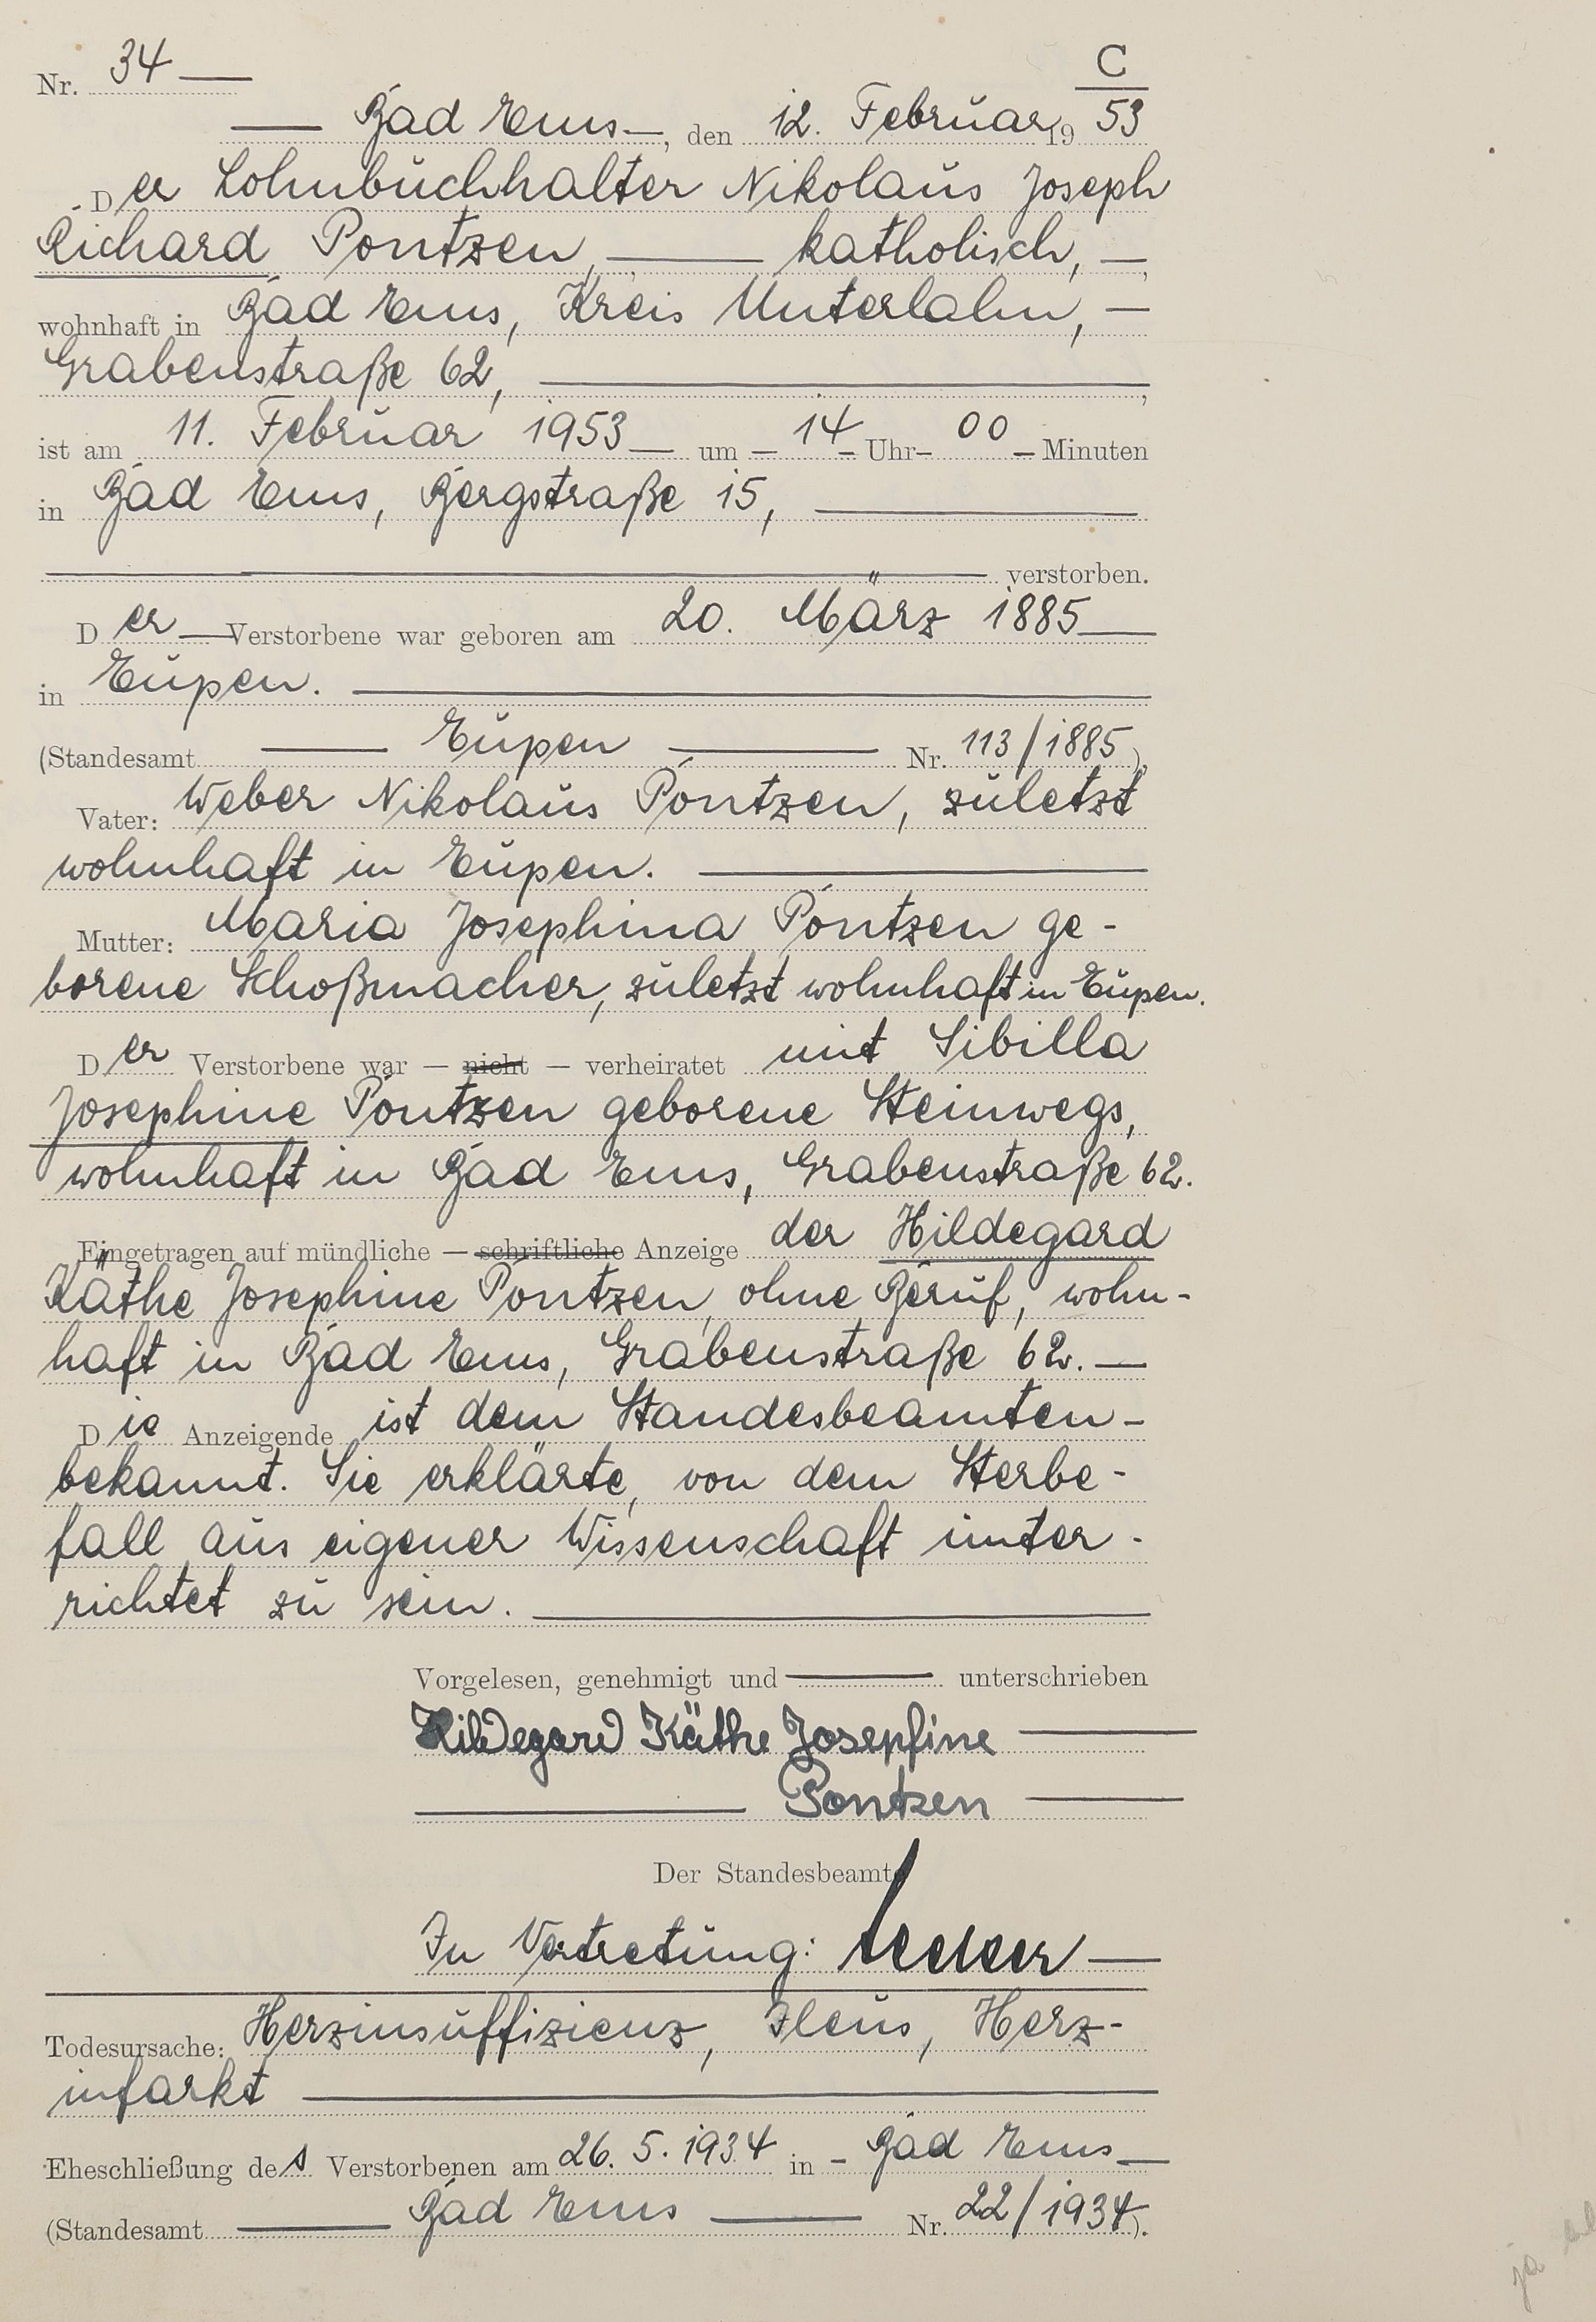 C
Nr. 34
Bad Ems, den 12. Februar 19 53
Der Lohnbuchhalter Nikolaus Joseph
Richard Pontzen, katholisch,
wohnhaft in Bad Ems, Kreis Unterlahn,
Grabenstraße 62,
ist am 11. Februar 1953 um 14 Uhr 00 Minuten
in Bad Ems, Bergstraße 15,
verstorben.
Der Verstorbene war geboren am 20. März 1885
in Eupen.
(Standesamt Eupen Nr. 113/1885)
Vater: Weber Nikolaus Pontzen, zuletzt
wohnhaft in Eupen.
Mutter: Maria Josephina Pontzen ge-
borene Schoßmacher, zuletzt wohnhaft in Eupen.
Der Verstorbene war — nicht — verheiratet mit Sibilla
Josephine Pontzen geborene Steinwegs,
wohnhaft in Bad Ems, Grabenstraße 62.
Eingetragen auf mündliche — schriftliche Anzeige der Hildegard
Käthe Josephine Pontzen, ohne Beruf, wohn-
haft in Bad Ems, Grabenstraße 62.
Die Anzeigende ist dem Standesbeamten
bekannt. Sie erklärte, von dem Sterbe-
fall aus eigener Wissenschaft unter-
richtet zu sein.
Vorgelesen, genehmigt und unterschrieben
Hildegard Käthe Josepfine
Pontzen
Der Standesbeamte
In Vertretung:
Todesursache: Herzinsuffizienz, Ileus, Herz-
infarkt
Eheschließung des Verstorbenen am 26. 5. 1934 in Bad Ems
(Standesamt Bad Ems Nr. 22/1934).